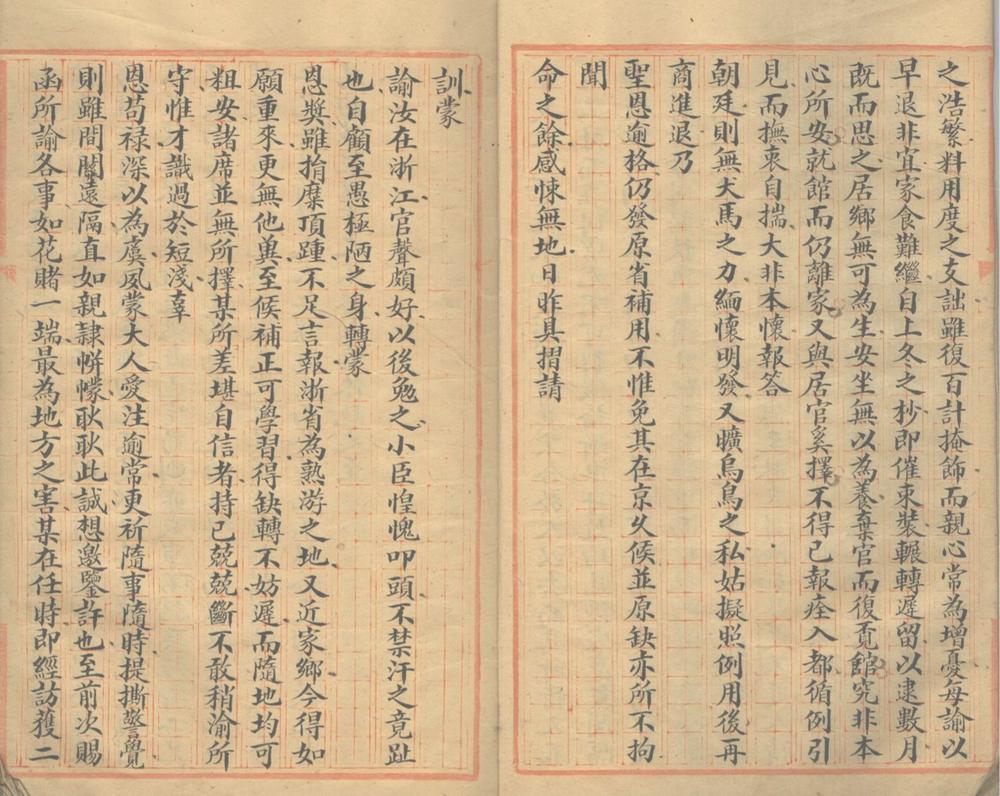 之浩繁料用度之支詘雖復百計掩飾而親心常為增憂母諭以
早退非宜家食難繼自上冬之杪即催束裝輾轉遲留以逮數月
既而思之居鄉無可為生安坐無以為養棄官而復覔館究非本
心所安就館而仍離家又與居官奚擇不得已報痊入都循例引
見而撫衷自揣大非本懷報答
朝廷則無犬馬之力緬懷明發又曠烏鳥之私姑擬照例用後再
商進退乃
聖恩逾格仍發原省補用不惟免其在京久候並原缺亦所不拘
聞
命之餘感悚無地日昨具摺請
訓蒙
諭汝在浙江官聲頗好以後勉之小臣惶愧叩頭不禁汗之竟趾
也自顧至愚極陋之身轉蒙
恩獎雖捐糜頂踵不足言報浙省為熟游之地又近家鄉今得如
願重來更無他兾至候補正可學習得缺轉不妨遲而隨地均可
粗安諸席並無所擇某所差堪自信者持己兢兢斷不敢稍渝所
守惟才識過於短淺辜
恩苟祿深以為虞夙蒙大人愛注逾常更祈隨事隨時提撕警覺
則雖間關遠隔直如親隸帡幪耿耿此誠想邀鑒許也至前次賜
函所諭各事如花賭一端最為地方之害某在任時即經訪獲二